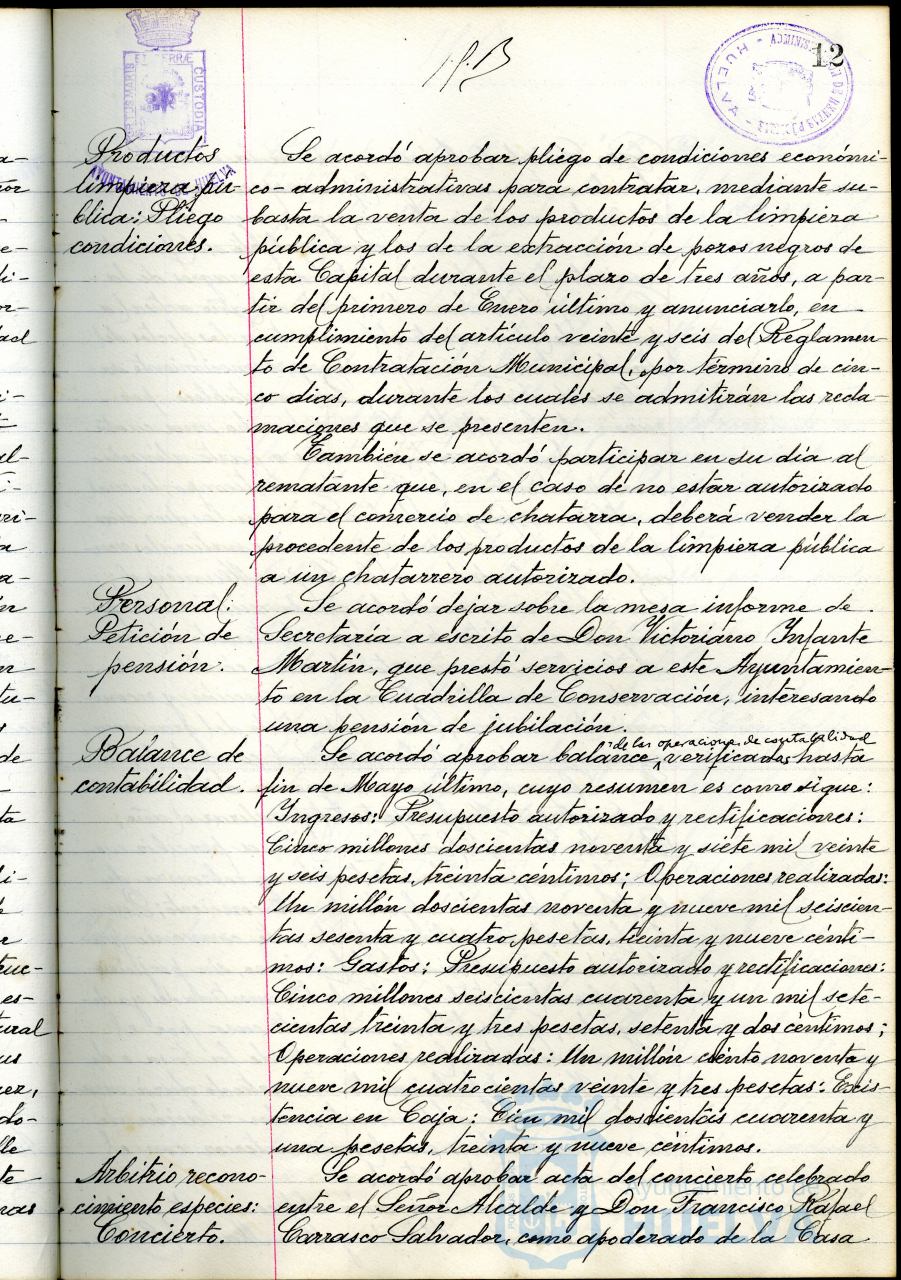 12
Productos
limpieza pú-
blica: Pliego
condiciones.
Se acordó aprobar pliego de condiciones económi-
co-administrativas para contratar, mediante su-
basta la venta de los productos de la limpieza
pública y los de la extracción de pozos negros de
esta Capital durante el plazo de tres años, a par-
tir del primero de Enero último y anunciarlo, en
cumplimiento del artículo veinte y seis del Reglamen-
to de Contratación Municipal, por término de cin-
co dias, durante los cuales se admitirán las recla-
maciones que se presenten.
Tambien se acordó participar en su dia al
rematante que, en el caso de no estar autorizado
para el comercio de chatarra, deberá vender la
procedente de los productos de la limpieza pública
a un chatarrero autorizado.
Personal:
Petición de
pensión.
Se acordó dejar sobre la mesa informe de
Secretaría a escrito de Don Victoriano Infante
Martín, que prestó servicios a este Ayuntamien-
to en la Cuadrilla de Conservación, interesando
una pensión de jubilación.
Balance de
contabilidad.
Se acordó aprobar balance, de las operaciones de contabilidad verificadas hasta
fin de Mayo último, cuyo resumen es como sigue:
Ingresos: Presupuesto autorizado y rectificaciones:
Cinco millones doscientas noventa y siete mil veinte
y seis pesetas, treinta céntimos; Operaciones realizadas:
Un millón doscientas noventa y nueve mil seiscien-
tas sesenta y cuatro pesetas, treinta y nueve cénti-
mos: Gastos: Presupuesto autorizado y rectificaciones:
Cinco millones seiscientas cuarenta y un mil sete-
cientas treinta y tres pesetas, setenta y dos céntimos;
Operaciones realizadas: Un millón ciento noventa y
nueve mil cuatrocientas veinte y tres pesetas: Exis-
tencia en Caja: Cien mil doscientas cuarenta y
una pesetas, treinta y nueve céntimos.
Arbitrio recono-
cimiento especies:
Concierto.
Se acordó aprobar acta del concierto celebrado
entre el Señor Alcalde y Don Francisco Rafael
Carrasco Salvador, como apoderado de la Casa
Ayuntamiento de
HUELVA